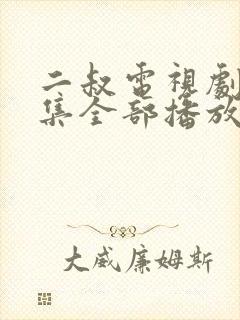 二叔電視劇
集全部播放
大威廉姆斯